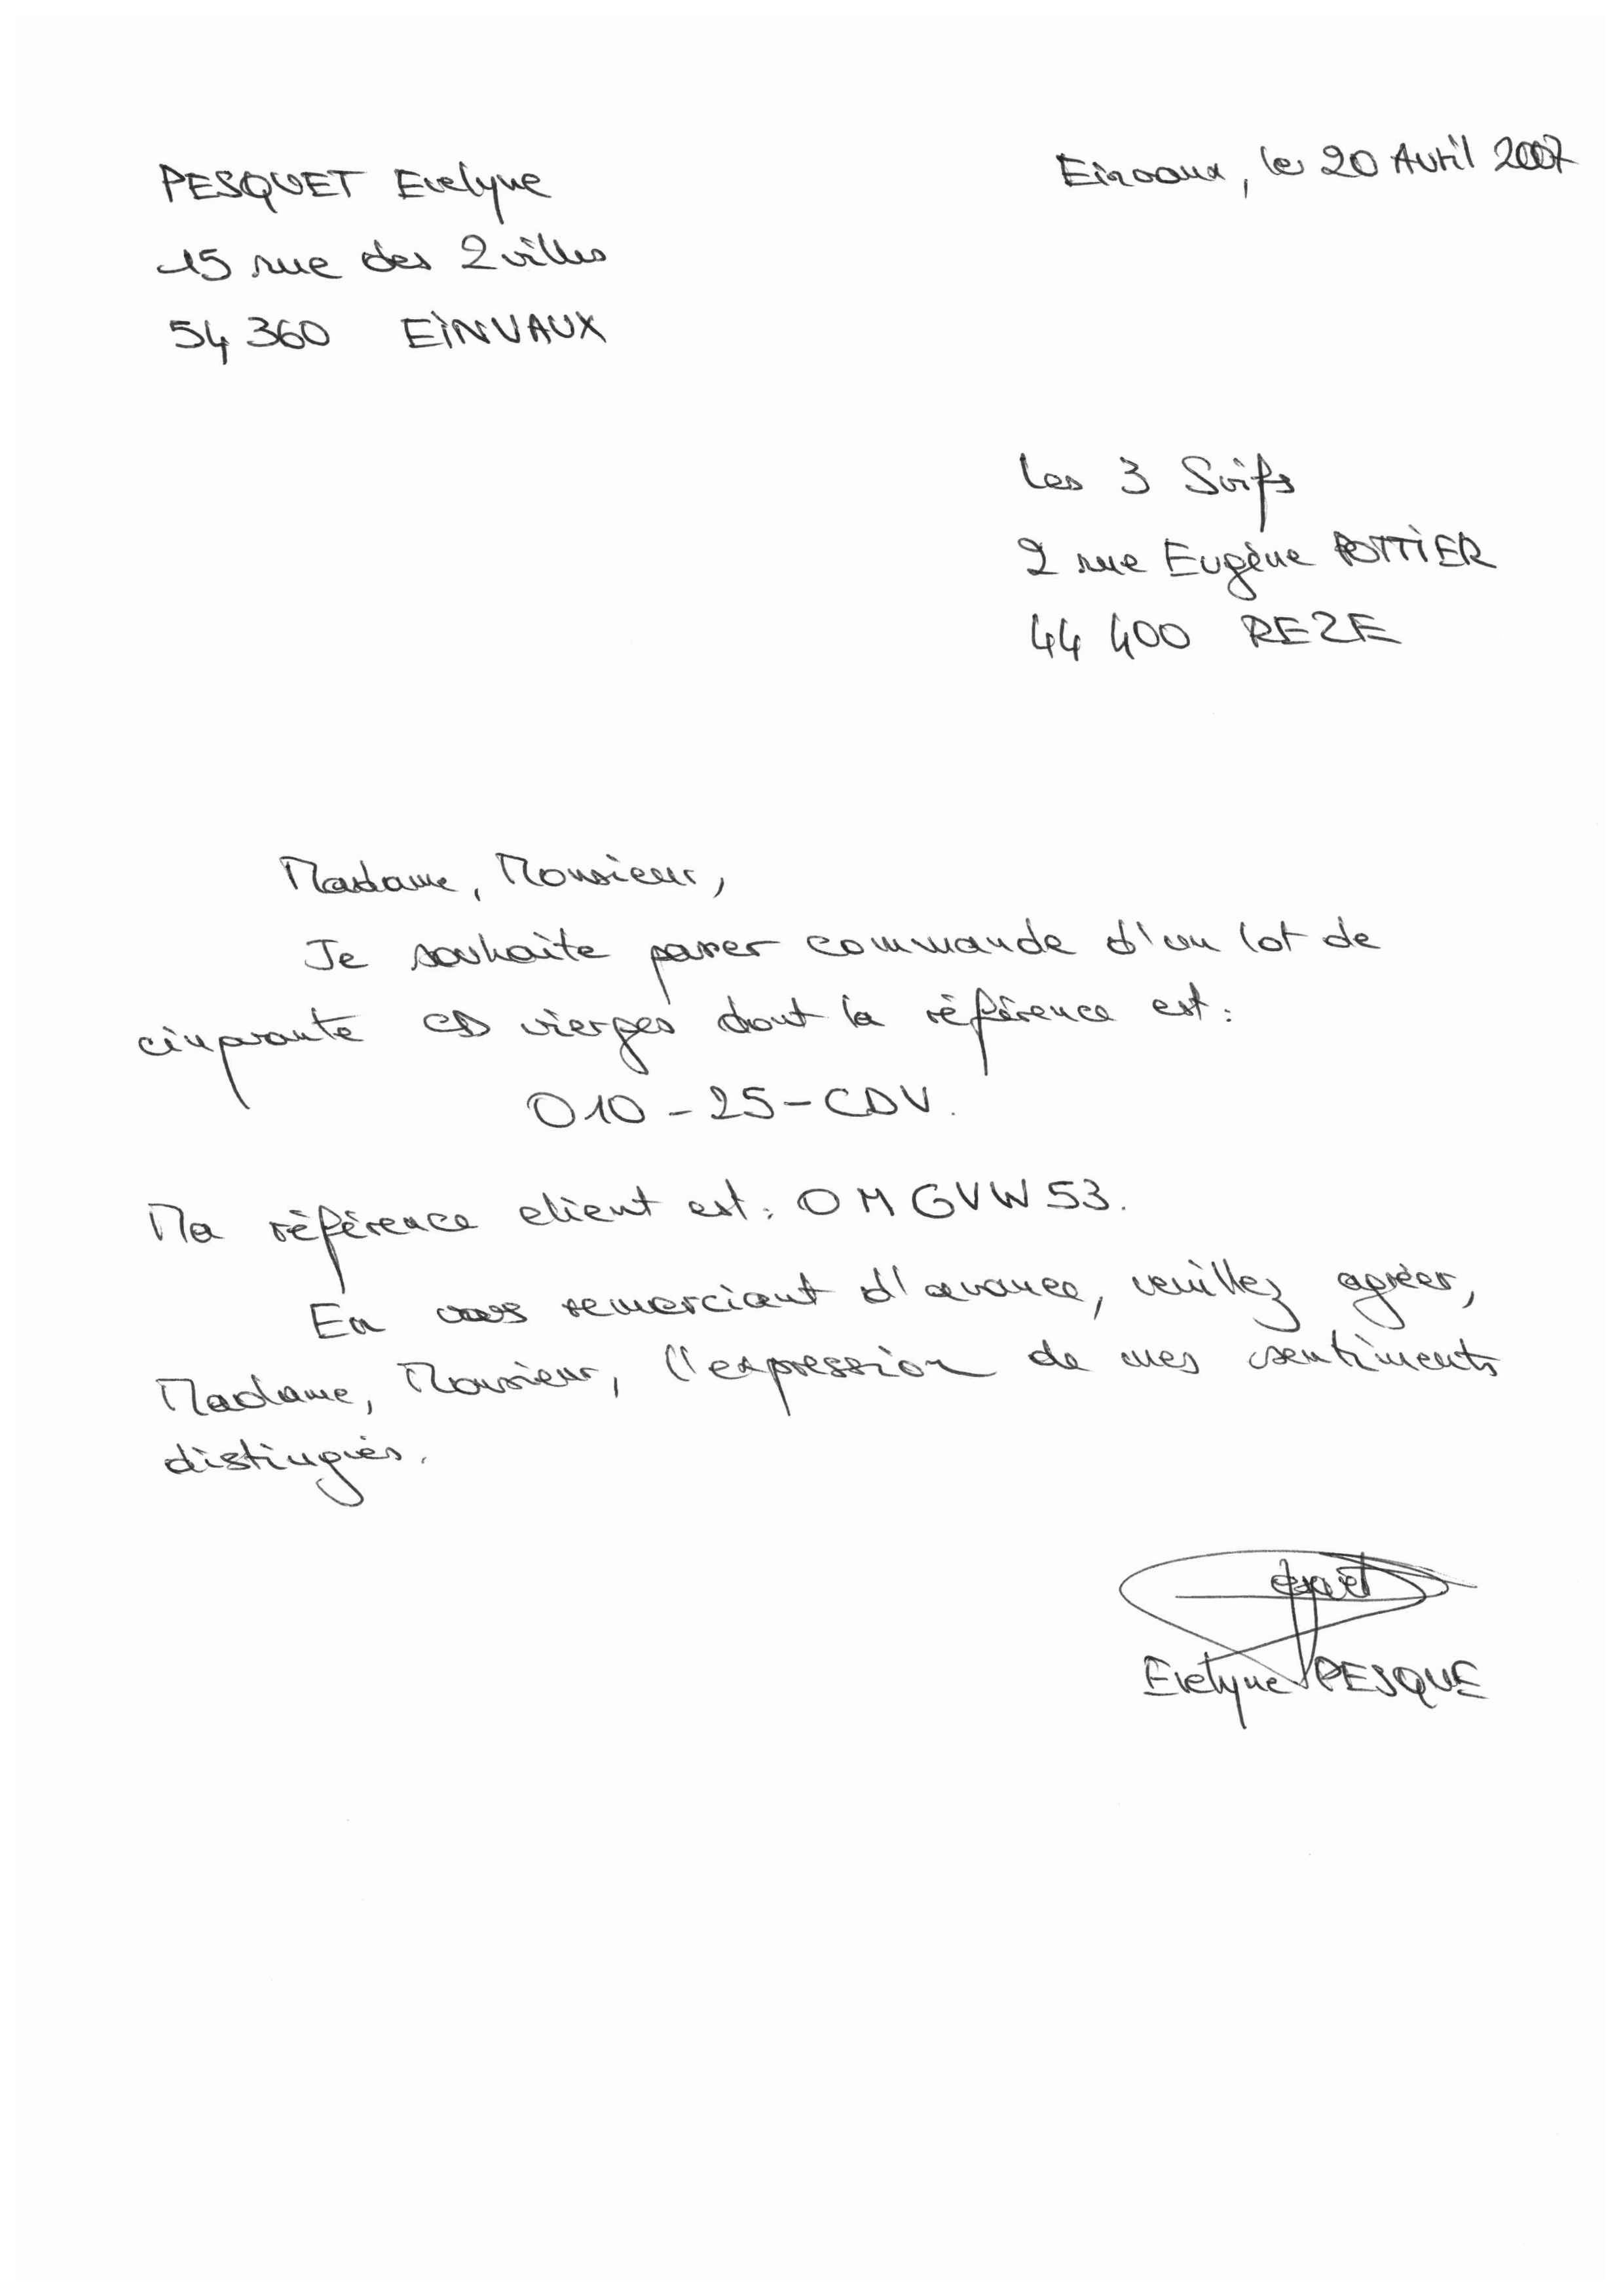 PESQUET Evelyne
Einvaux, le 20 Avril 2007
15 rue des 2 villes
54 360 EINVAUX
Les 3 Suifs
2 rue Eugène POTTIER
44 400 REZE
Madame, Monsieur,
Je souhaite passer commande d'un lot de
cinquante CD vierges dont la référence est :
010-25-CDV.
Ma référence client est : OMGVW53.
En vous remerciant d'avance, veuillez agréer,
Madame, Monsieur, l'expression de mes sentiments
distingués.
Evelyne PESQUE